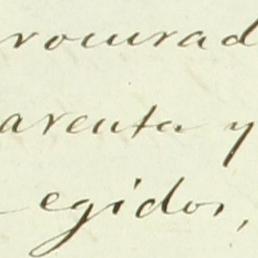 rocurad
arenta y
egidos,